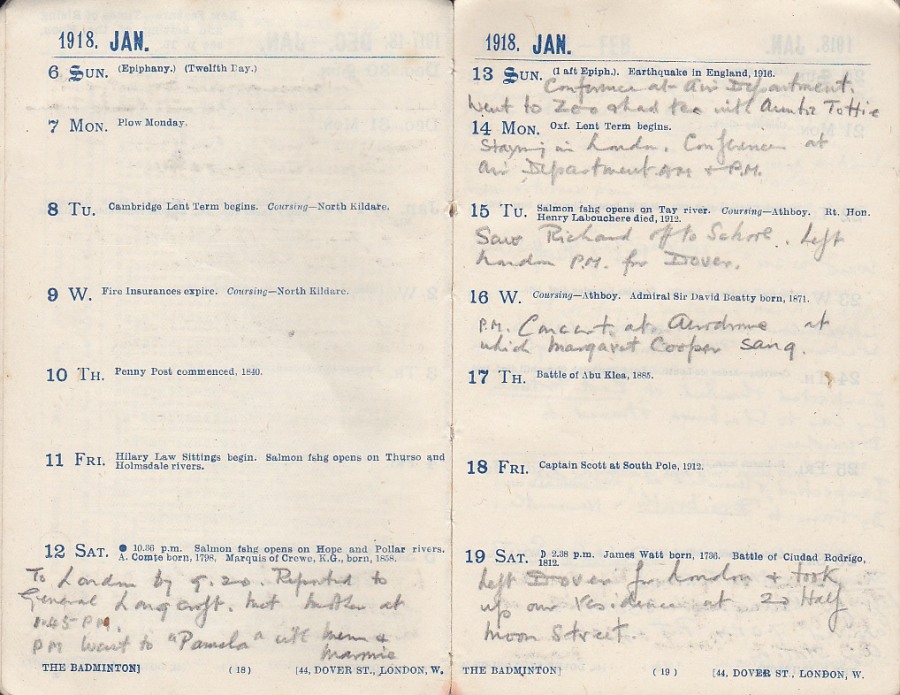 1918. JAN.
6 SUN. (Epiphany.) (Twelfth Day.)
7 MON. Plow Monday.
8 TU. Cambridge Lent Term begins. Coursing—North Kildare.
9 W. Fire Insurances expire. Coursing—North Kildare.
10 TH. Penny Post commenced, 1840.
11 FRI. Hilary Law Sittings begin. Salmon fshg opens on Thurso and
Holmsdale rivers.
12 SAT. ● 10.36 p.m. Salmon fshg opens on Hope and Pollar rivers.
A. Comte born, 1798. Marquis of Crewe, K.G., born, 1858.
To London by 9.20. Reported to
General Longcroft. Met Mother at
1.45 P.M.
PM Went to "Pamela" with &
Marmie
THE BADMINTON] (18) [44, DOVER ST., LONDON, W.
1918. JAN.
13 SUN. (1 aft Epiph.). Earthquake in England, 1916.
Conference at Air Department.
Went to Zoo & had tea with Auntie Tottie
14 MON. Oxf. Lent Term begins.
Staying in London. Conference at
Air Department AM & P.M.
15 TU. Salmon fshg opens on Tay river. Coursing—Athboy. Rt. Hon.
Henry Labouchere died, 1912.
Saw Richard off to School. Left
London P.M. for Dover.
16 W. Coursing—Athboy. Admiral Sir David Beatty born, 1871.
P.M. Concert at Aerodrome at
which Margaret Cooper sang.
17 TH. Battle of Abu Klea, 1885.
18 FRI. Captain Scott at South Pole, 1912.
19 SAT. ☽ 2.38 p.m. James Watt born, 1736. Battle of Ciudad Rodrigo,
1812.
Left Dover for London & took
up our residence at 20 Half
Moon Street.
THE BADMINTON] (19) [44, DOVER ST., LONDON, W.